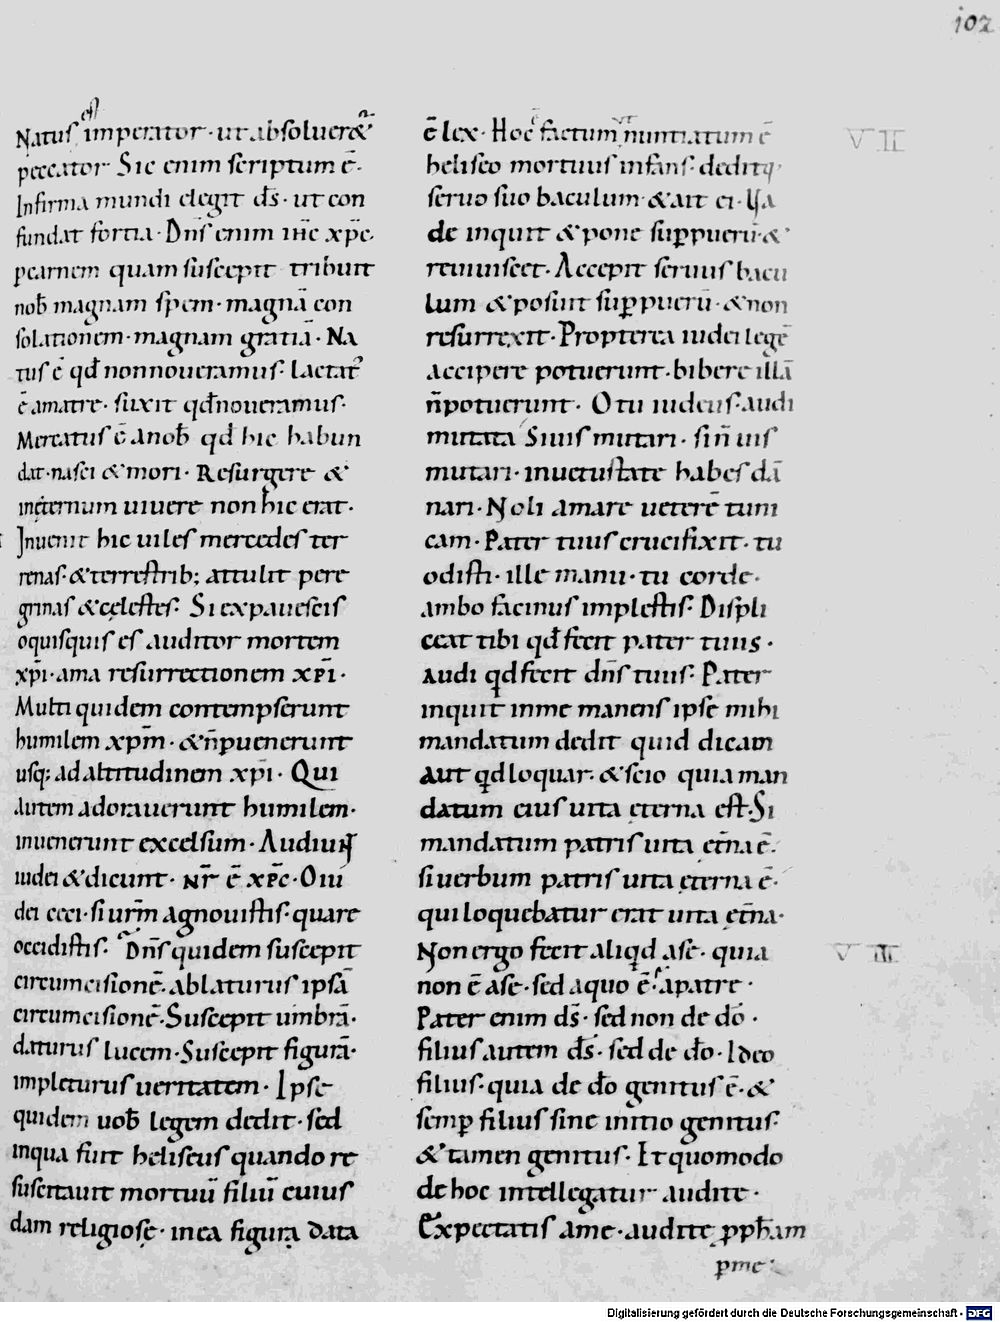 102
Natus est imperator · ut absolueret̃
peccator Sic enim scriptum ē·
Infirma mundi elegit d̄s · ut con
fundat fortia · Dn̄s enim ih̄c xp̄c·
p carnem quam suscepit tribuit
nob̄ magnam spem · magnā con
solationem · magnam gratiā · Na
tus ē qd̄ non noueramus · lactat᷑
ē a matre · suxit qd̄ noueramus ·
Mercatus ē a nob̄ qd̄ hic habun
dat · nasci & mori · Resurgere &
in ęternum uiuere non hic erat ·
Inuenit hic uiles mercedes ter
renas · & terrestrib; attulit pere
grinas & cęlestes · Si expauescis
o quisquis es auditor mortem
xp̄i · ama resurrectionem xp̄i ·
Multi quidem contempserunt
humilem xp̄m · & n̄ puenerunt
usq; ad altitudinem xp̄i · Qui
autem adorauerunt humilem ·
inuenerunt excelsum · Audiunt
iudei & dicunt · nr̄ ē xp̄c · O iu
dei ceci · si ur̄m agnouistis · quare
occidistis · Dn̄s quidem suscepit
circumcisionē · ablaturus ipsā
circumcisionē · Suscepit umbrā ·
daturus lucem · Suscepit figurā ·
impleturus ueritatem · Ipse
quidem uob̄ legem dedit · sed
in qua fuit heliseus quando re
suscitauit mortuū filiū cuius
dam religiosę · in ea figura data
ē lex · Hoc ē factum ut nuntiatum ē
heliseo mortuus infans · deditq;
seruo suo baculum · & ait ei · Ua
de inquit & pone sup puerū · &
reuiuiscet · Accepit seruus bacu
lum & posuit sup puerū · & non
resurrexit · Propterea iudei legē
accipere potuerunt · bibere illā
n̄ potuerunt · O tu iudeus · audi
mutita Si uis mutari · si n̄ uis
mutari · in uetustate habes dā
nari · Noli amare ueterē tuni
cam · Pater tuus crucifixit · tu
odisti · ille manu · tu corde ·
ambo facinus implestis · Displi
ceat tibi qd̄ fecit pater tuus ·
audi qd fecit dn̄s tuus · Pater
inquit in me manens ipse mihi
mandatum dedit quid dicam
aut qd loquar · & scio quia man
datum eius uita ęterna est · Si
mandatum patris uita ęt̄na ē ·
si uerbum patris uita ęterna ē ·
qui loquebatur erat uita ęt̄na ·
Non ergo fecit aliqd a se · quia
non ē a se · sed a quo ē · a patre ·
Pater enim d̄s · sed non de d̄o ·
filius autem d̄s · sed de d̄o · Ideo
filius · quia de d̄o genitus ē · &
semp filius sine initio genitus ·
& tamen genitus · It quomodo
de hoc intellegatur audite ·
Expectatis a me · audite p ph̄am
p me ·
VII
VIII
Digitalisierung gefördert durch die Deutsche Forschungsgemeinschaft · DFG